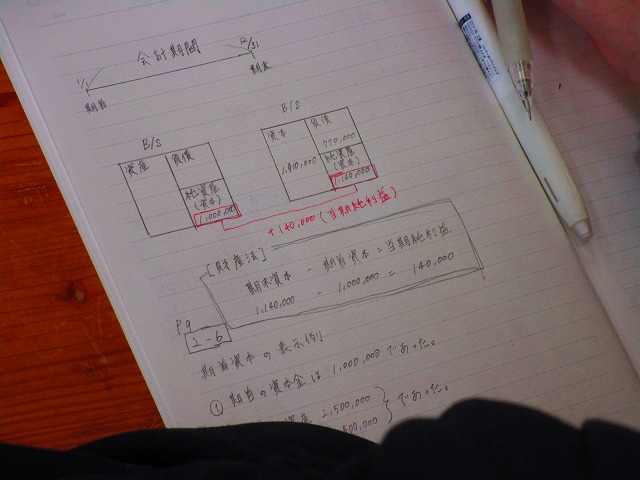 会計期間
1/1
12/31
期首
期末
B/S
資産
負債
純資産
(資本)
1,000,000
B/S
資本
負債
1,910,000
770,000
純資産
(資本)
1,140,000
+140,000 (当期純利益)
[財産法]
期末資本 - 期首資本 = 当期純利益
1,140,000 - 1,000,000 = 140,000
P9
2-6
期首資本の表示例
① 期首の資本金は 1,000,000 であった。
資産 2,500,000
500,000 } であった。